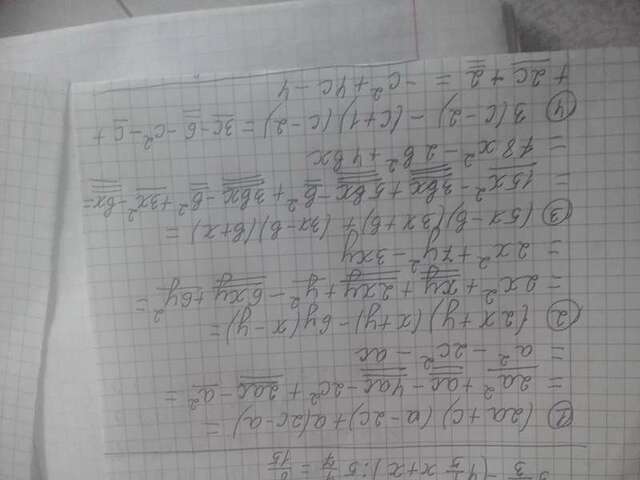 ① (2a+c)(a-2c)+a(2c-a) =
= 2a²+ac-4ac-2c²+2ac-a² =
= a²-2c²-ac
② (2x+y)(x+y)-6y(x-y)=
= 2x²+xy+2xy+y²-6xy+6y²=
= 2x²+7y²-3xy
③ (5x-b)(3x+b)+(3x-b)(b+x) =
= 15x²-3bx+5bx-b²+3bx-b²+3x²-bx=
= 18x²-2b²+4bx
④ 3(c-2)-(c+1)(c-2)=3c-6-c²-c+
+2c+2 = -c²+4c-4